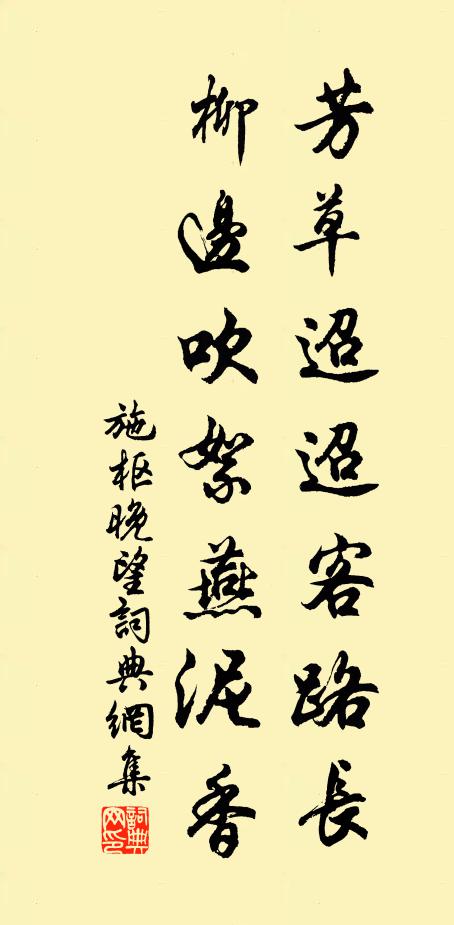 芳草迢迢客路長
柳邊吹絮燕泥香
施枢晚望詞典網集
詞典网印